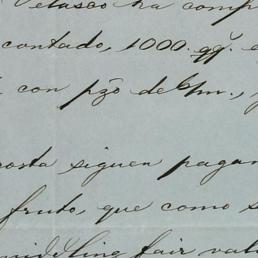 Velasco ha comp
contado, 1000. qq. e
con pzo de 6/m.,
osta siguen pagan
fruto, que como s
middling fair valu